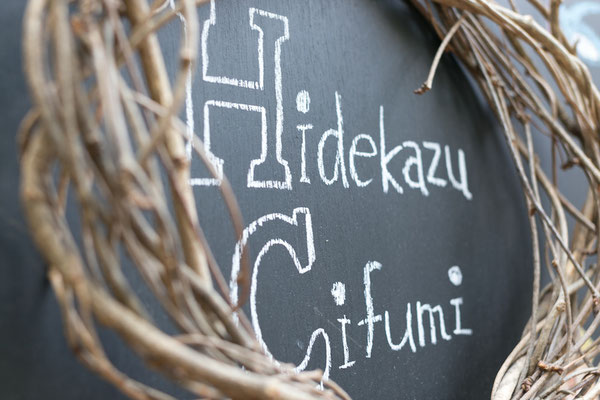 Hidekazu
Cifumi